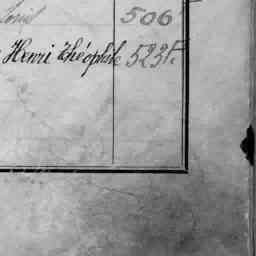 506
Henri Théophile 523F.